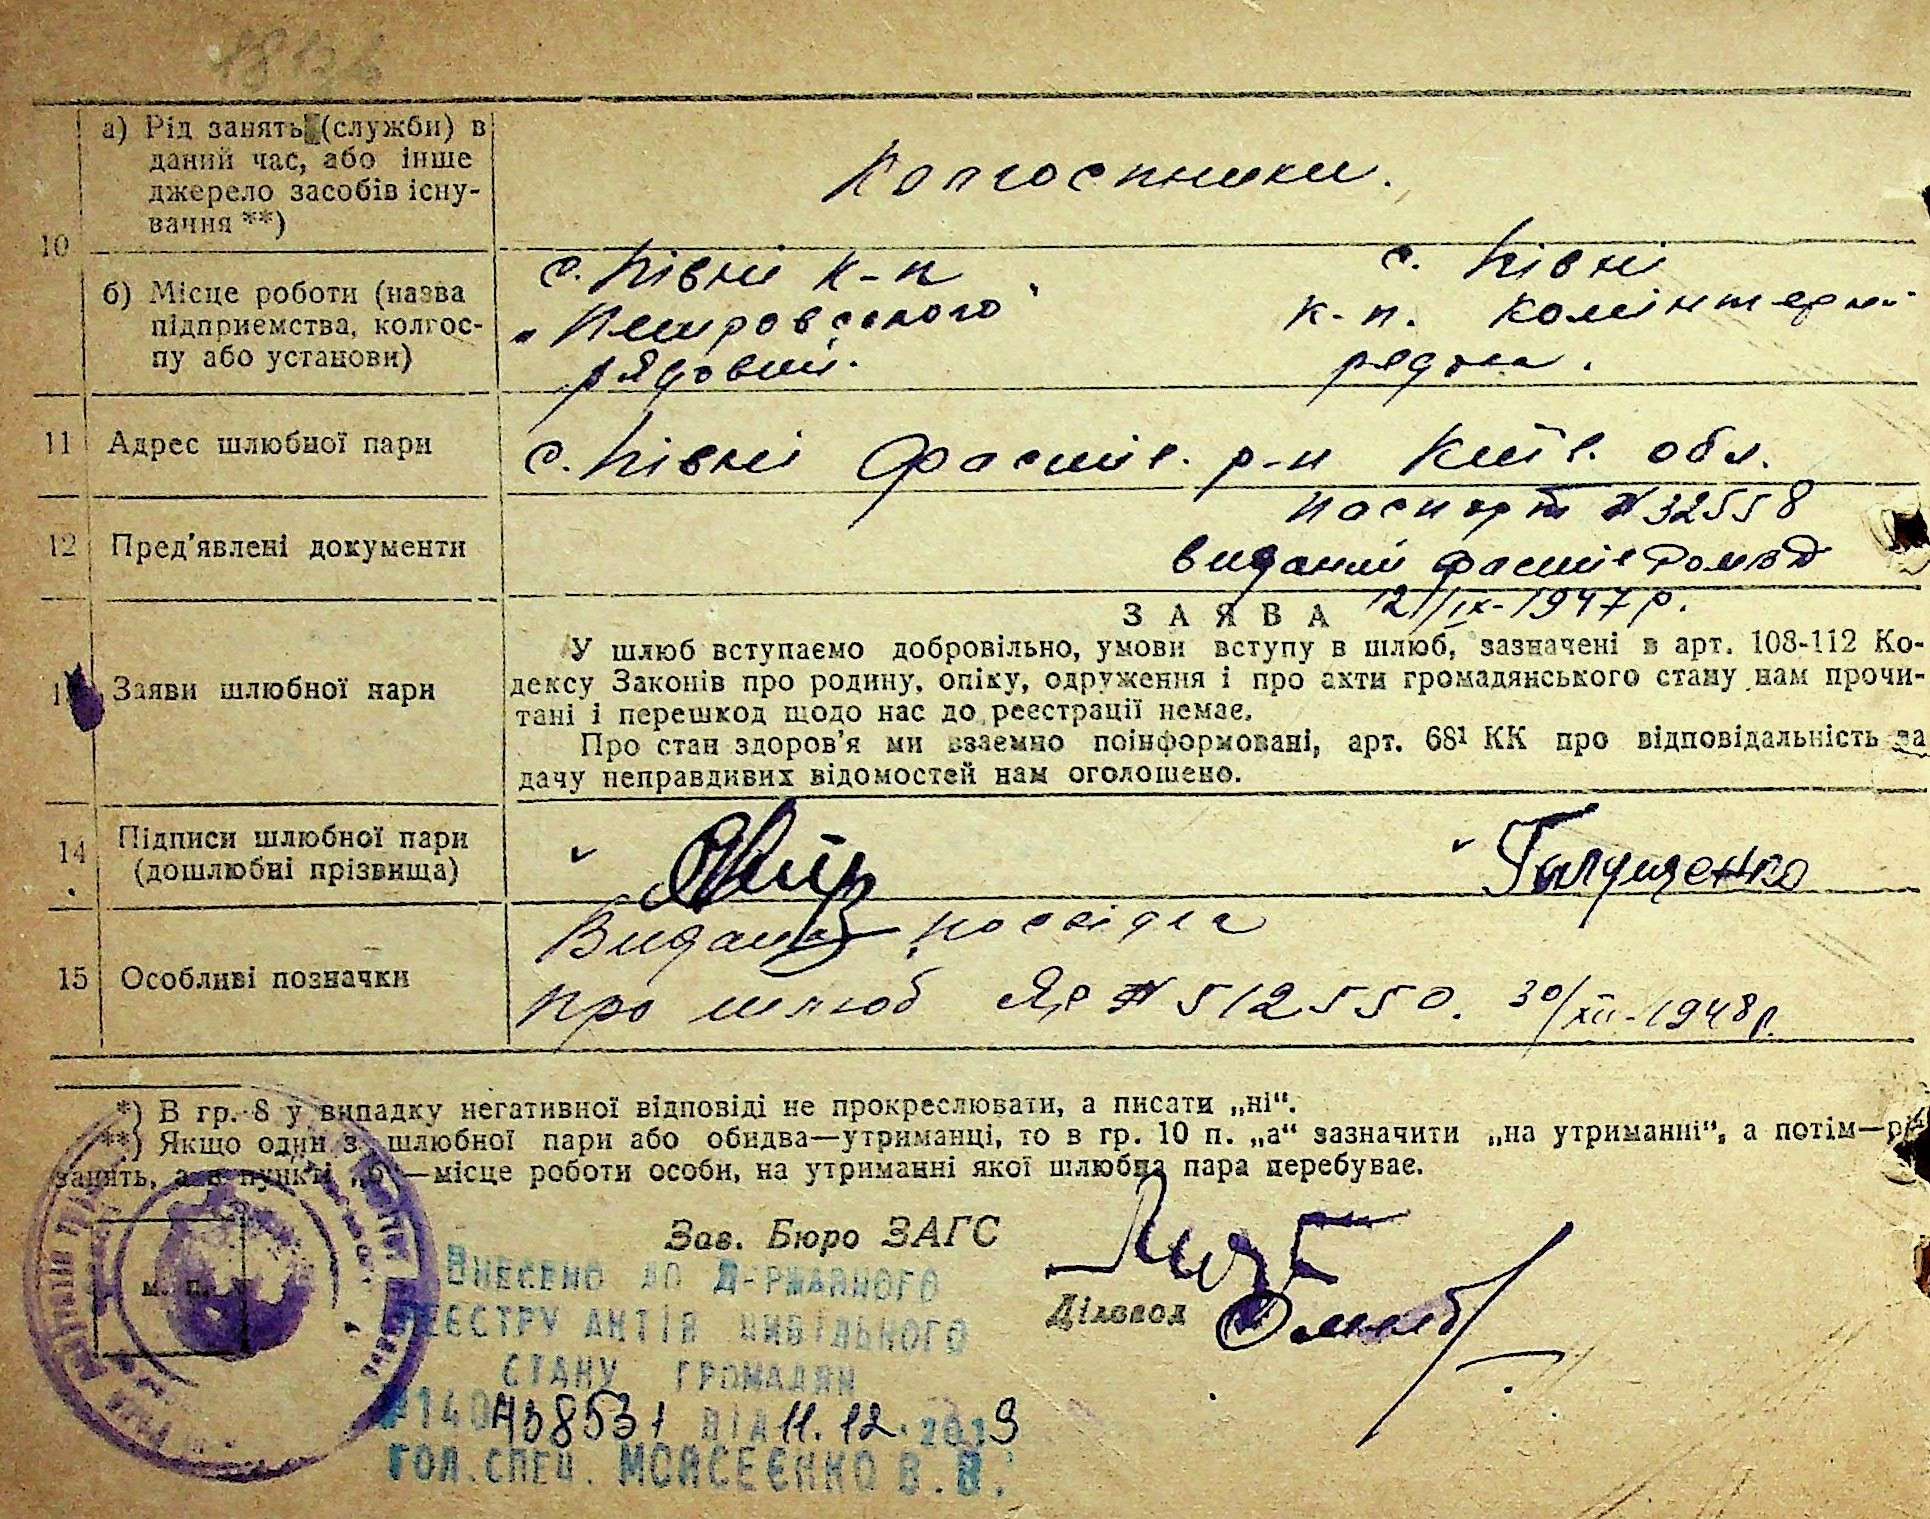 10
а) Рід занять (службы) в
даний час, або інше
джерело засобів існу-
вання **)
Колгоспники.
б) Місце роботи (назва
підприємства, колгос-
пу або установи)
с. Півні к-п
„Петровського“
рядовий.
с. Півні
к-п. Комінтерн
рядова.
11
Адрес шлюбної пари
с. Півні Фастів. р-н Київ. обл.
12
Пред'явлені документи
паспорт № 32558
виданий Фастів
12/IX-1947 р.
Заяви шлюбної пари
ЗАЯВА
У шлюб вступаємо добровільно, умови вступу в шлюб, зазначені в арт. 108-112 Ко-
дексу Законів про родину, опіку, одруження і про акти громадянського стану нам прочи-
тані і перешкод щодо нас до реєстрації немає.
Про стан здоров'я ми взаємно поінформовані, арт. 68¹ КК про відповідальність за
дачу неправдивих відомостей нам оголошено.
14
Підписи шлюбної пари
(дошлюбні прізвища)
15
Особливі позначки
Видана посвідка
про шлюб № 512550. 30/XII-1948 р.
*) В гр. 8 у випадку негативної відповіді не прокреслювати, а писати „ні“.
**) Якщо один з шлюбної пари або обидва—утриманці, то в гр. 10 п. „а“ зазначити „на утриманні“, а потім—рід
занять, а в пункті „б“—місце роботи особи, на утриманні якої шлюбна пара перебуває.
М. П.
Зав. Бюро ЗАГС
Діловод
ВНЕСЕНО ДО ДЕРЖАВНОГО
РЕЄСТРУ АКТІВ ЦИВІЛЬНОГО
СТАНУ ГРОМАДЯН
ВІД 11.12.2019
ГОЛ. СПЕЦ. МОЙСЕЄНКО В.